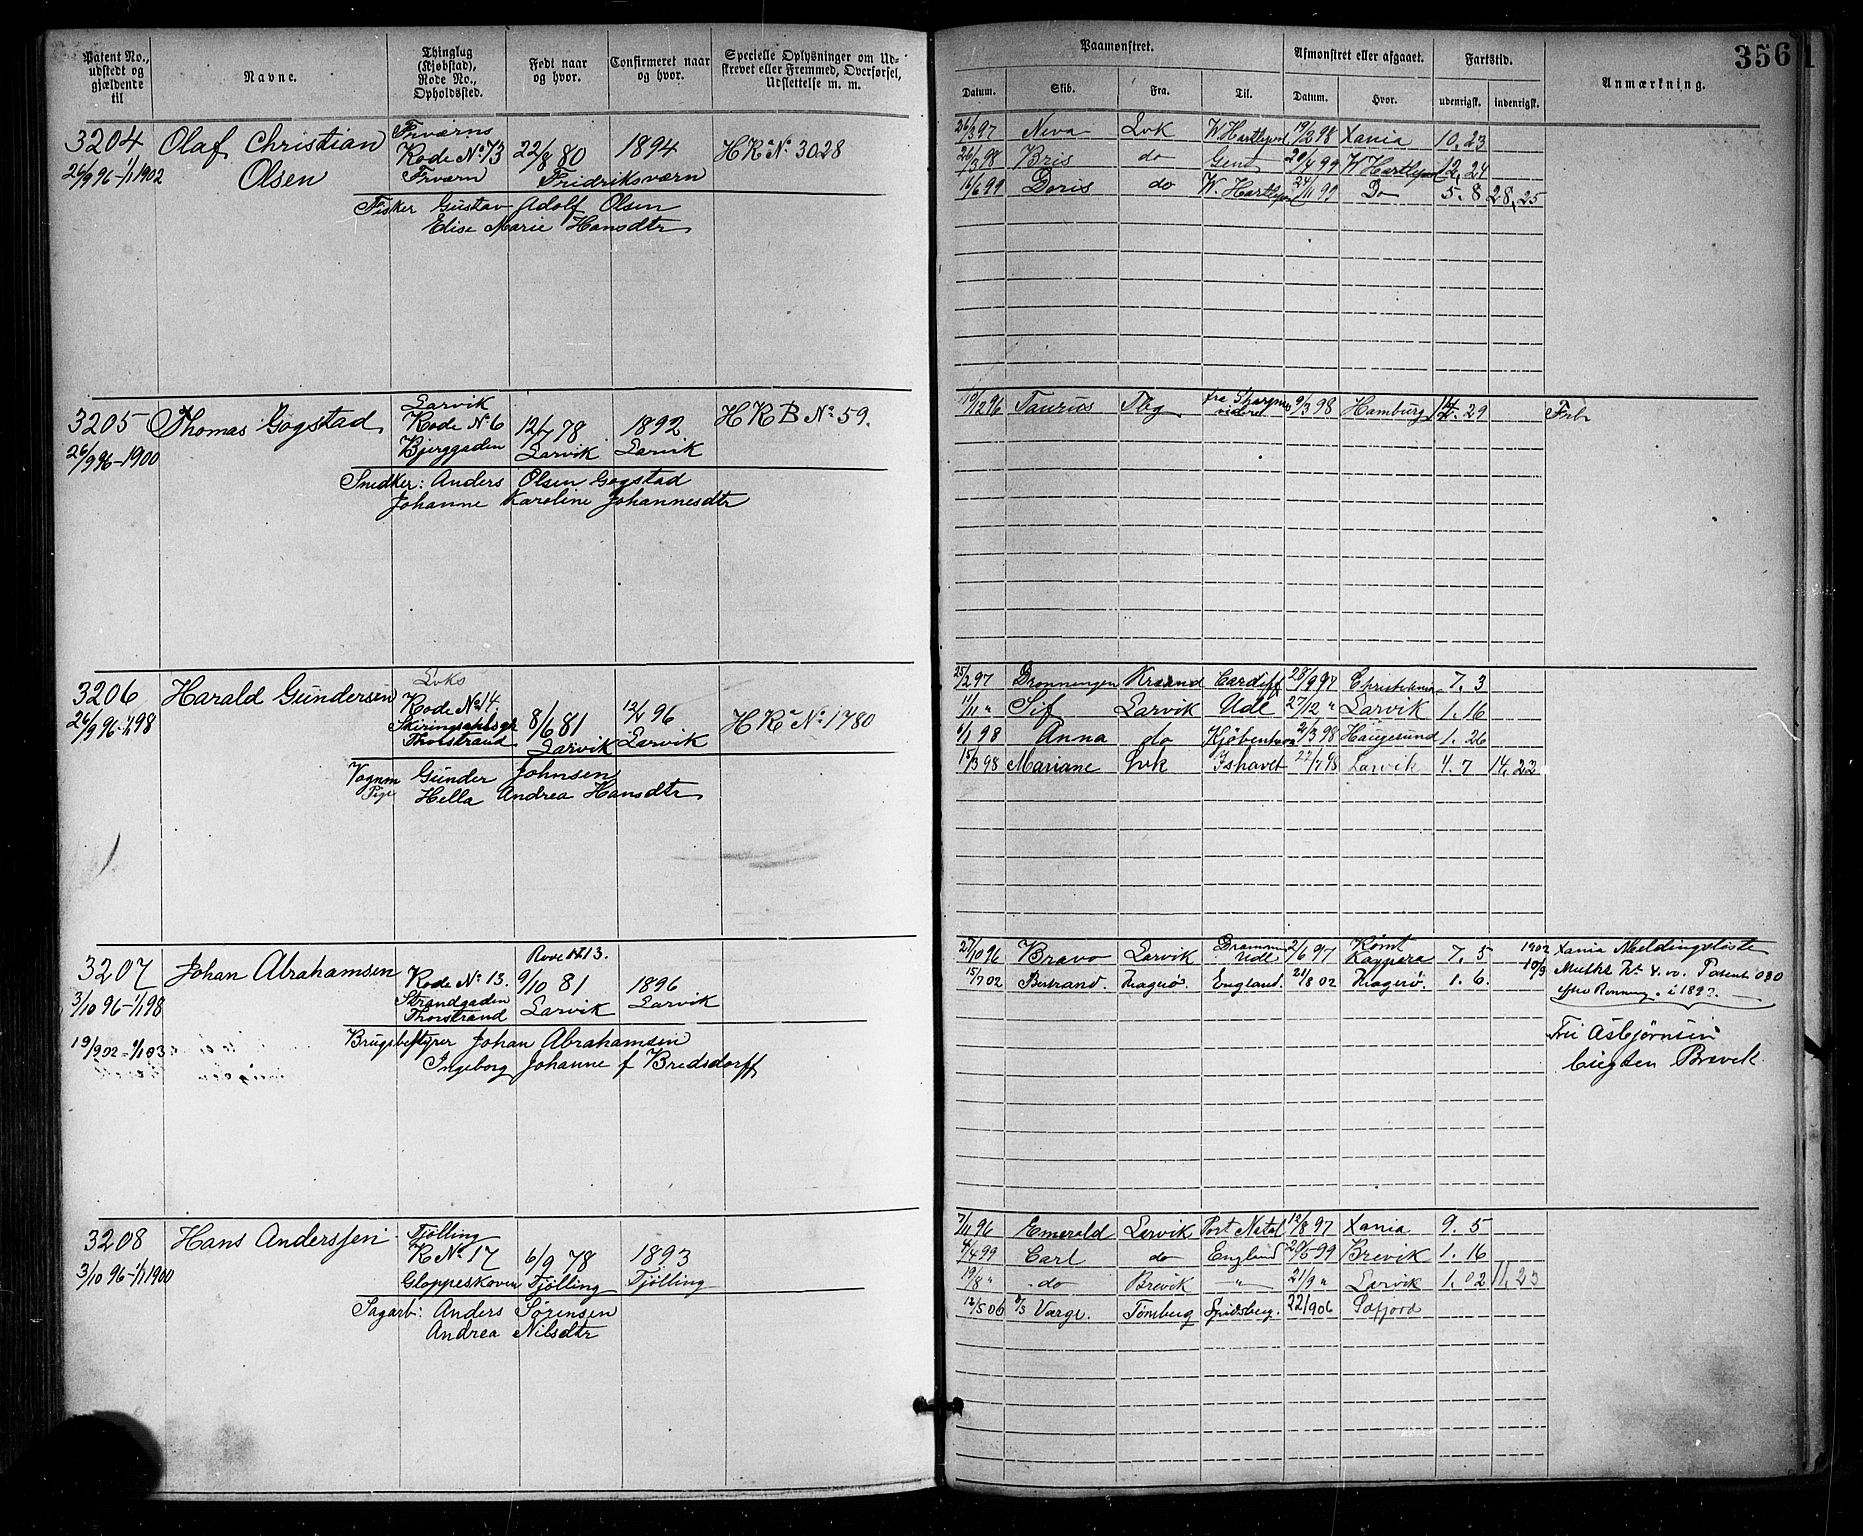 Patent No., udstedt og gjældende til
Navne.
Thinglag (Kjøbstad), Rode No., Opholdssted.
Født naar og hvor.
Confirmeret naar og hvor.
Specielle Oplysninger om Udskrevet eller Fremmed, Overførsel, Udslettelse m. m.
Paamønstret.
Afmønstret eller afgaaet.
Fartstid.
Anmærkning.
356
Datum.
Skib.
Fra.
Til.
Datum.
Hvor.
udenrigsk.
indenrigsk.
3204 Olaf Christian Olsen
26/9 96-1/1 1902
Frværns
Rode No 73
Frværn
22/8 80
Fridriksværn
1894
HR No 3028
Fisker Gustav Adolf Olsen
Elise Marie Hansdtr
26/3 97 Neva Lvk W Hartlepool 19/2 98 Xania 10. 23
26/3 98 Bris do Gent 20/4 99 W Hartlepool 12. 24
16/6 99 Doris do W. Hartlepool 24/11 99 Do 5. 8 28, 25
3205 Thomas Gogstad
26/9 96-1900
Larvik
Rode No 6
Bjerggaden
12/7 78
Larvik
1892
Larvik
HRB No 59.
Snedker: Anders Olsen Gogstad
Johanne Karoline Johannesdtr
19/12 96 Taurus Tbg videre 9/3 98 Hamburg 29
3206 Harald Gundersen
26/9 96-1/1 98
Lvks
Rode No 14.
Skiringssalsgd
Thorstrand
8/6 81
Larvik
12/4 96
Larvik
HR No 1780
Vognm Gunder Johnsen
Pige Hella Andrea Hansdtr
25/2 97 Dronningen Krsand Cardiff 28/9 97 Christiania 7. 3
11/11 " Sif Larvik Udl 27/12 " Larvik 1. 16
6/1 98 Anna do Kjøbenhavn 2/3 98 Haugesund 1. 26
15/3 98 Mariane Lvk Ishavet 22/7 98 Larvik 4. 7 14, 22
3207 Johan Abrahamsen
3/10 96-1/1 98
19/9 02-1/1 03
Rode No 13.
Rode No 13.
Strandgaden
Thorstrand
9/10 81
Larvik
1896
Larvik
Brugsbestyrer Johan Abrahamsen
Ingeborg Johanne f Bredsdorff
27/10 96 Bravo Larvik Drammen Udl 2/6 97 Rømt 7. 5
15/7 02 Bertrand. Kragerø. England. 21/8 02 Kragerø. 1. 6.
1902 Xania Meldingsliste
10/9
efter Rømning i 1897.
Fri Asbjørnsen
Brevik
3208 Hans Anderssen
3/10 96-1/1 1900
Tjølling
R No 17
Gloppeskoven
6/9 78
Tjølling
1893
Tjølling
Sagarb: Anders Sørensen
Andrea Nilsdtr
7/11 96 Emerald Larvik Port Natal 12/8 97 Xania 9. 5
4/4 99 Carl do England 20/5 99 Brevik 1. 16
19/8 " do Brevik " 21/9 " Larvik 1. 02 11, 23
12/5 06 D/S Varge. Tønsberg Spidsberg. 22/9 06 Safjord